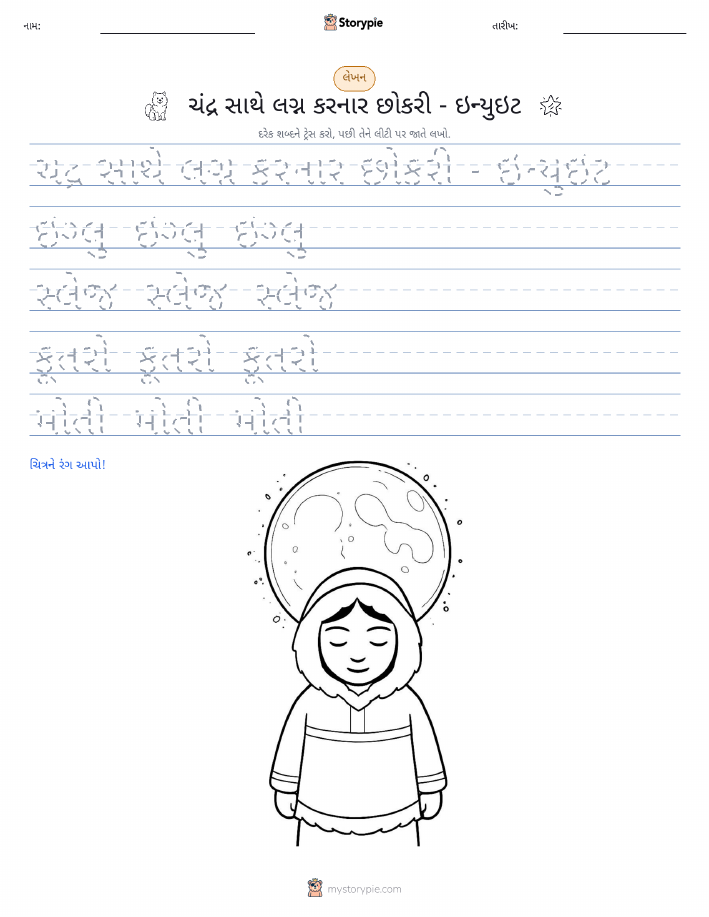 નામ:
Storypie
તારીખ:
લેખન
ચંદ્ર સાથે લગ્ન કરનાર છોકરી - ઇન્યુઇટ
દરેક શબ્દને ટ્રેસ કરો, પછી તેને લીટી પર જાતે લખો.
ચંદ્ર સાથે લગ્ન કરનાર છોકરી - ઇન્યુઇટ
ઇગ્લુ ઇગ્લુ ઇગ્લુ
સ્લેજ સ્લેજ સ્લેજ
કૂતરો કૂતરો કૂતરો
મોતી મોતી મોતી
ચિત્રને રંગ આપો!
mystorypie.com